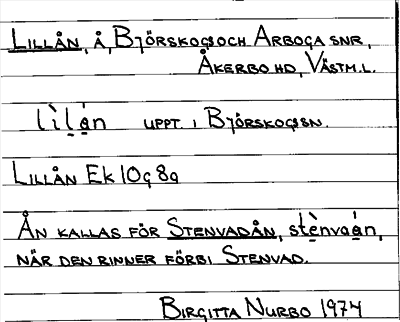 LILLÅN, Å, BJÖRSKOGS OCH ARBOGA SNR,
ÅKERBO HD, VÄSTM.L.
lìlạ́n UPPT. I BJÖRSKOGS SN.
LILLÅN EK 10g 8g
ÅN KALLAS FÖR STENVADÅN, stẹ̀nvaạ́n,
NÄR DEN RINNER FÖRBI STENVAD.
BIRGITTA NURBO 1974